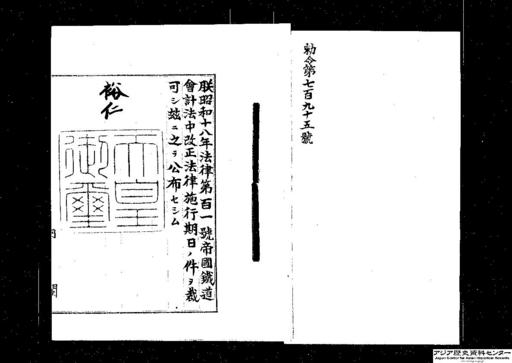 勅令第七百九十五號
朕昭和十八年法律第百一號帝國鐵道
會計法中改正法律施行期日ノ件ヲ裁
可シ茲ニ之ヲ公布セシム
裕仁
天皇
御璽
内
閣
アジア歴史資料センター
Japan Center for Asian Historical Records